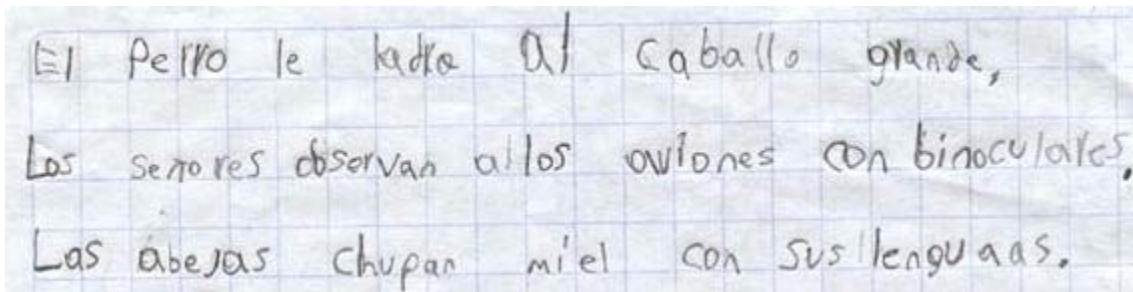 El Perro le ladra al caballo grande,
Los senores observan allos aviones con binoculares.
Las abejas chupan miel con sus lenguaas.